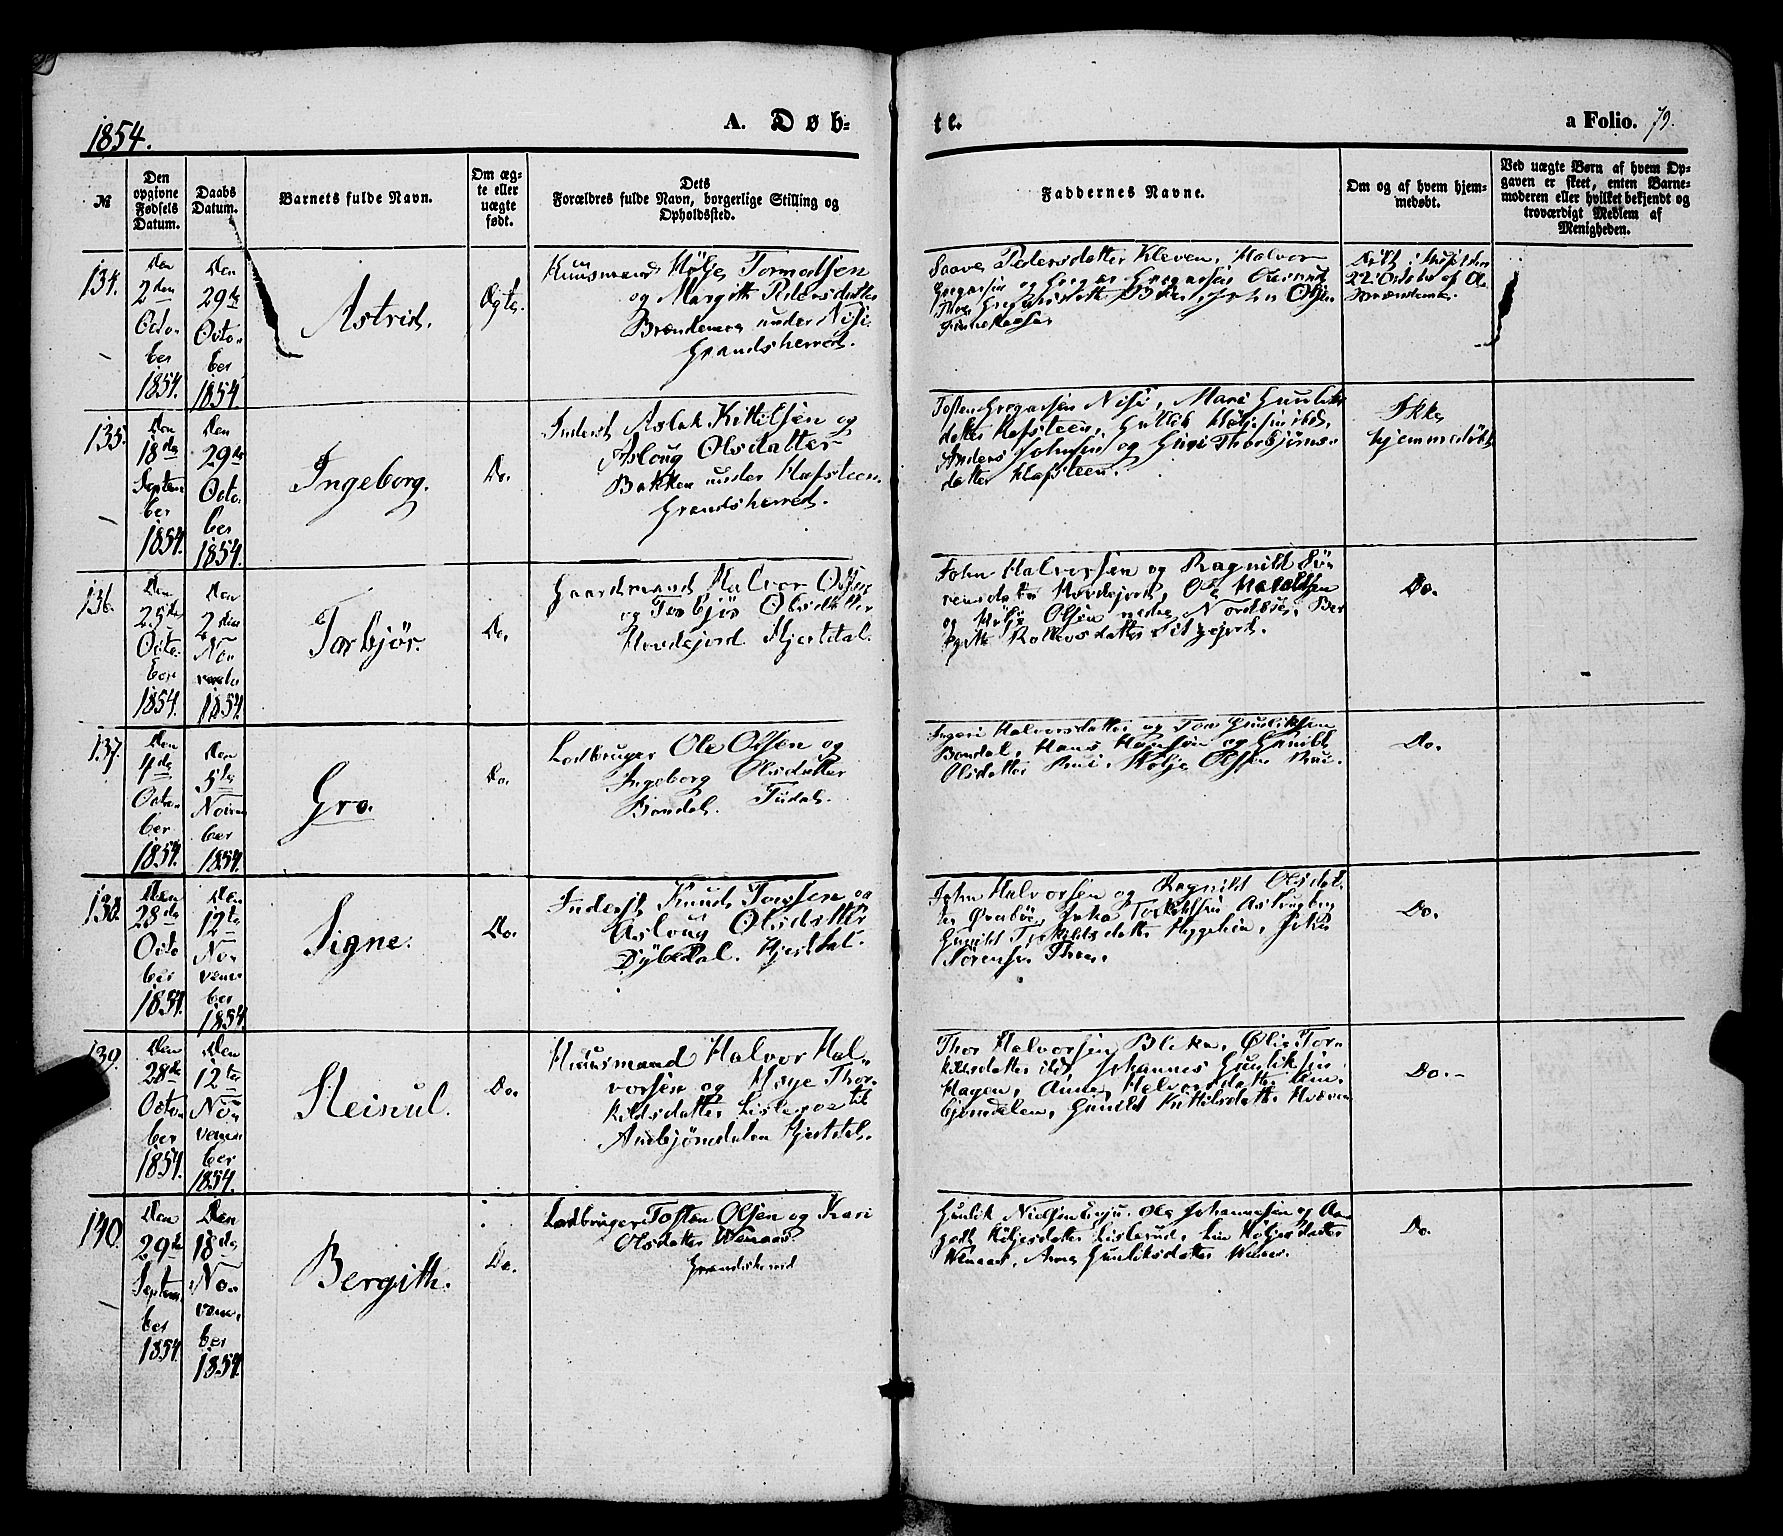 1854.
A. Døb-
te.
a Folio. 79.
№
Den opgivne Fødsels Datum.
Daabs Datum.
Barnets fulde Navn.
Om ægte eller uægte født.
Dets Forældres fulde Navn, borgerlige Stilling og Opholdssted.
Faddernes Navne.
Om og af hvem hjemmedøbt.
Ved uægte Børn af hvem Opgaven er skeet, enten Barnemoderen eller hvilket bekjendt og troværdigt Medlem af Menigheden.
134.
Den 2den October 1854.
Den 29de October 1854.
Astrid.
Ægte.
Huusmand Hølje Tormodsen
og Margith Pedersdatter
Brændemoe under Nisi.
Grandsherred.
Saave Pedersdatter Kleven, Halvor
Gregarsen og Gregar Gregarsen
John Olsen
22 October af
135.
Den 18de September 1854.
Den 29de October 1854.
Ingeborg.
Do.
Inderst Aslak Kittilsen og
Asloug Olsdatter
Bakken under Hafsteen.
Grandsherred.
Tosten Gregarsen Nisi, Mari Gunliks
datter Hafsteen, Gullik Høljesen ibid,
Anders Johnsen og Guri Thorbjørns-
datter Hafsteen.
Ikke
hjemmedøbt
136.
Den 25de October 1854.
Den 2den November 1854.
Torbjør.
Do.
Gaardmand Halvor Olsen
og Torbjør Olsdatter
Hovdejord Hjertdal.
John Halvorsen og Ragnild Sø-
rensdatter Hovdejord, Ole
og Hølje Olsen nedre
Do.
137.
Den 4de October 1854.
Den 5te November 1854.
Gro.
Do.
Lodbruger Ole Olsen og
Ingeborg Olsdatter
Bondal. Tudal.
Ingeri Halvorsdatter og Tov Gunliksen
Bondal, Hans Hansen og Gunild
Olsdatter Rui, Hølje Olsen Rui.
Do.
138.
Den 28de October 1854.
Den 12te November 1854.
Signe.
Do.
Inderst Knud Torssen og
Asloug Olsdatter
Dybedal. Hjertdal.
John Halvorsen og Ragnild Olsdat-
ter
Gunild Torkildsdatter
Sørensen
Do.
139.
Den 28de October 1854.
Den 12te November 1854.
Steinul.
Do.
Huusmand Halvor Hal-
vorsen og Høje Thor-
kildsdatter
Ambjønsdalen Hjertdal.
Thor Halvorsen Bleka, Ølie Tor-
kildsdatter ibid, Johannes Gunliksen
Hagen, Anne Halvorsdatter Am-
bjønsdalen, Gunild Kittilsdatter
Do.-
140.
Den 29de September 1854.
Den 18de November 1854.
Bergith.
Do.
Lodbruger Tosten Olsen og Kari
Olsdatter Wenaas
Grandsherred
Gunlik Nielsen Ole Johannesen og Aa-
goth Høljesdatter Høljesdatter
Wenaas, Anne Gunliksdatter Wenaas.
Do.